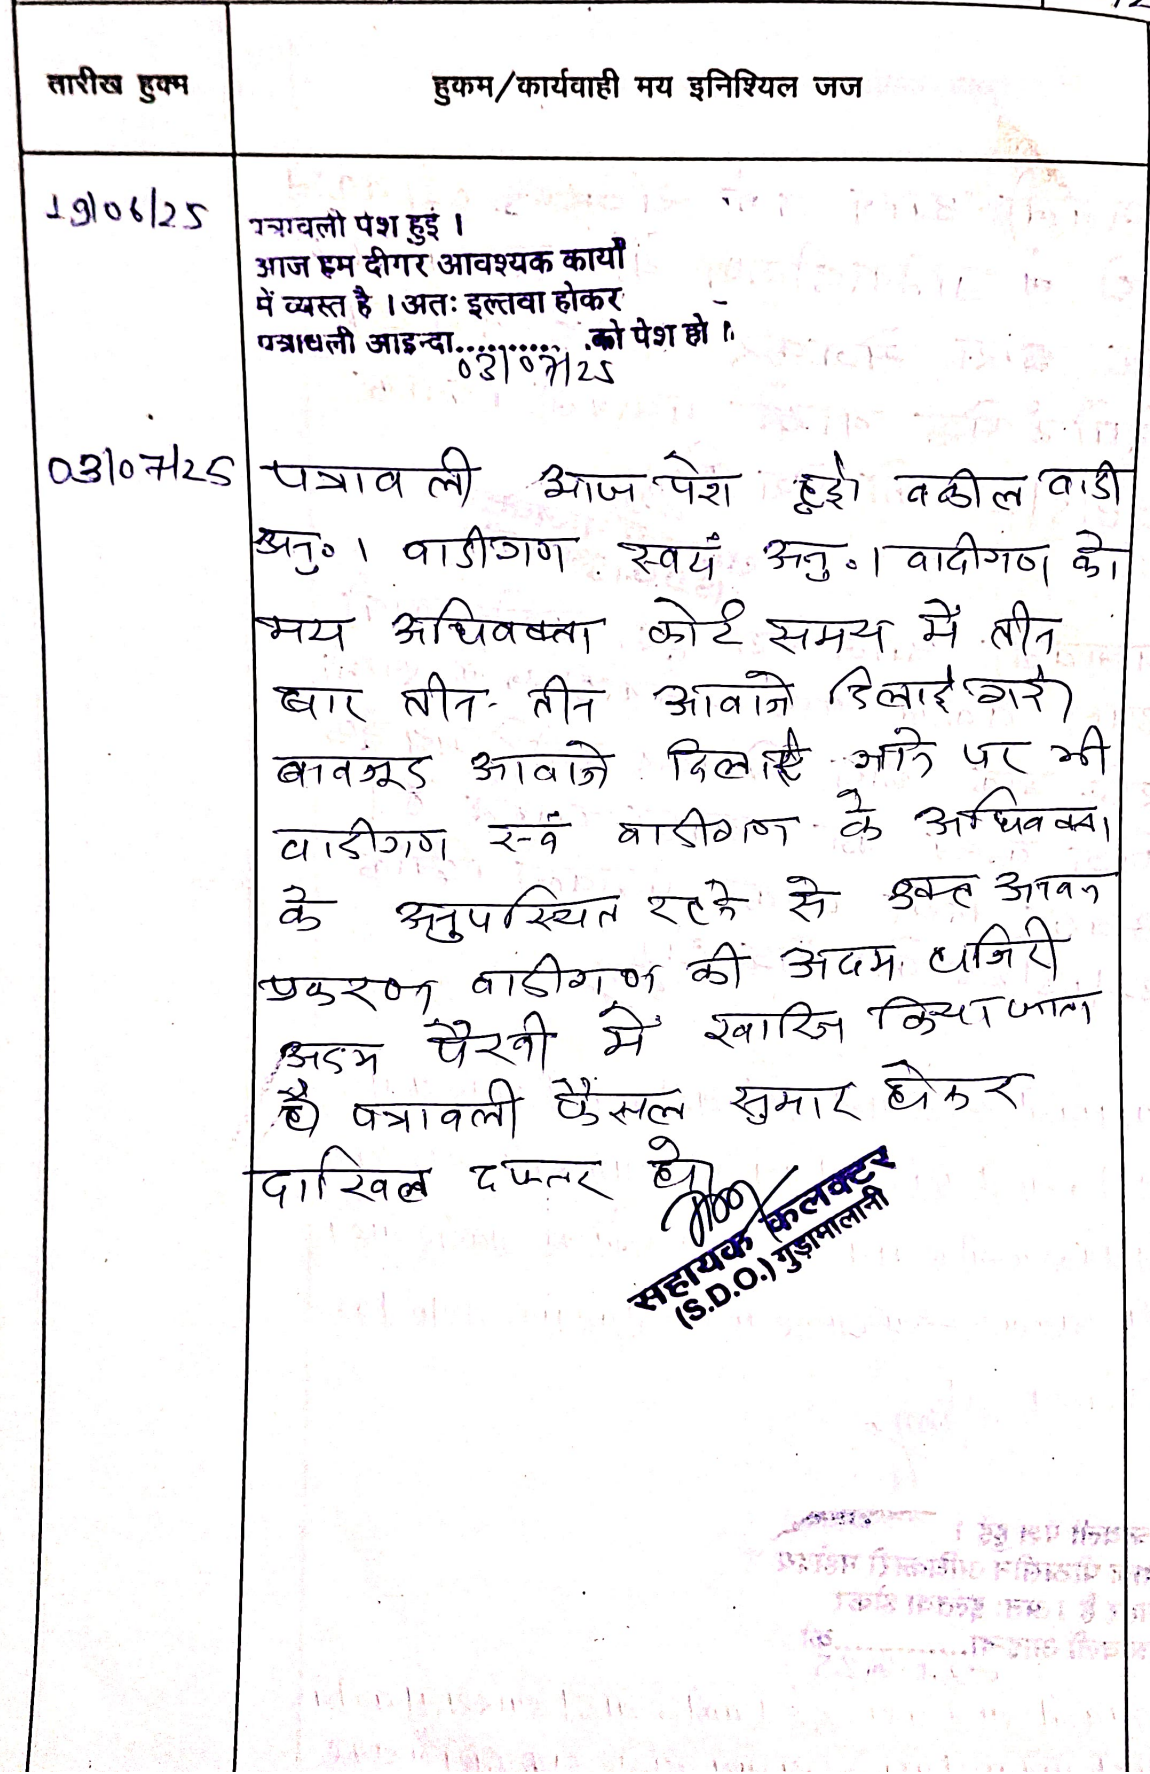 तारीख हुक्म
हुकम/कार्यवाही मय इनिशियल जज
19/06/25
पत्रावली पेश हुई ।
आज हम दीगर आवश्यक कार्यों
में व्यस्त है । अतः इल्तवा होकर
पत्रावली आइन्दा........... को पेश हो ।
03/07/25
03/07/25
पत्रावली आज पेश हुई। वकील वादी
अनु० । वादीगण स्वयं अनु० । वादीगण को
मय अधिवक्ता कोर्ट समय में तीन
बार तीन-तीन आवाजे दिलाई गई।
बावजूद आवाजे दिलाई जाने पर भी
वादीगण एवं वादीगण के अधिवक्ता
के अनुपस्थित रहने से उक्त
प्रकरण वादीगण की अदम हाजिरी
अदम पैरवी में खारिज किया जाता
है। पत्रावली फैसल सुमार होकर
दाखिल दफ्तर हो।
सहायक कलक्टर
(S.D.O.) गुड़ामालानी